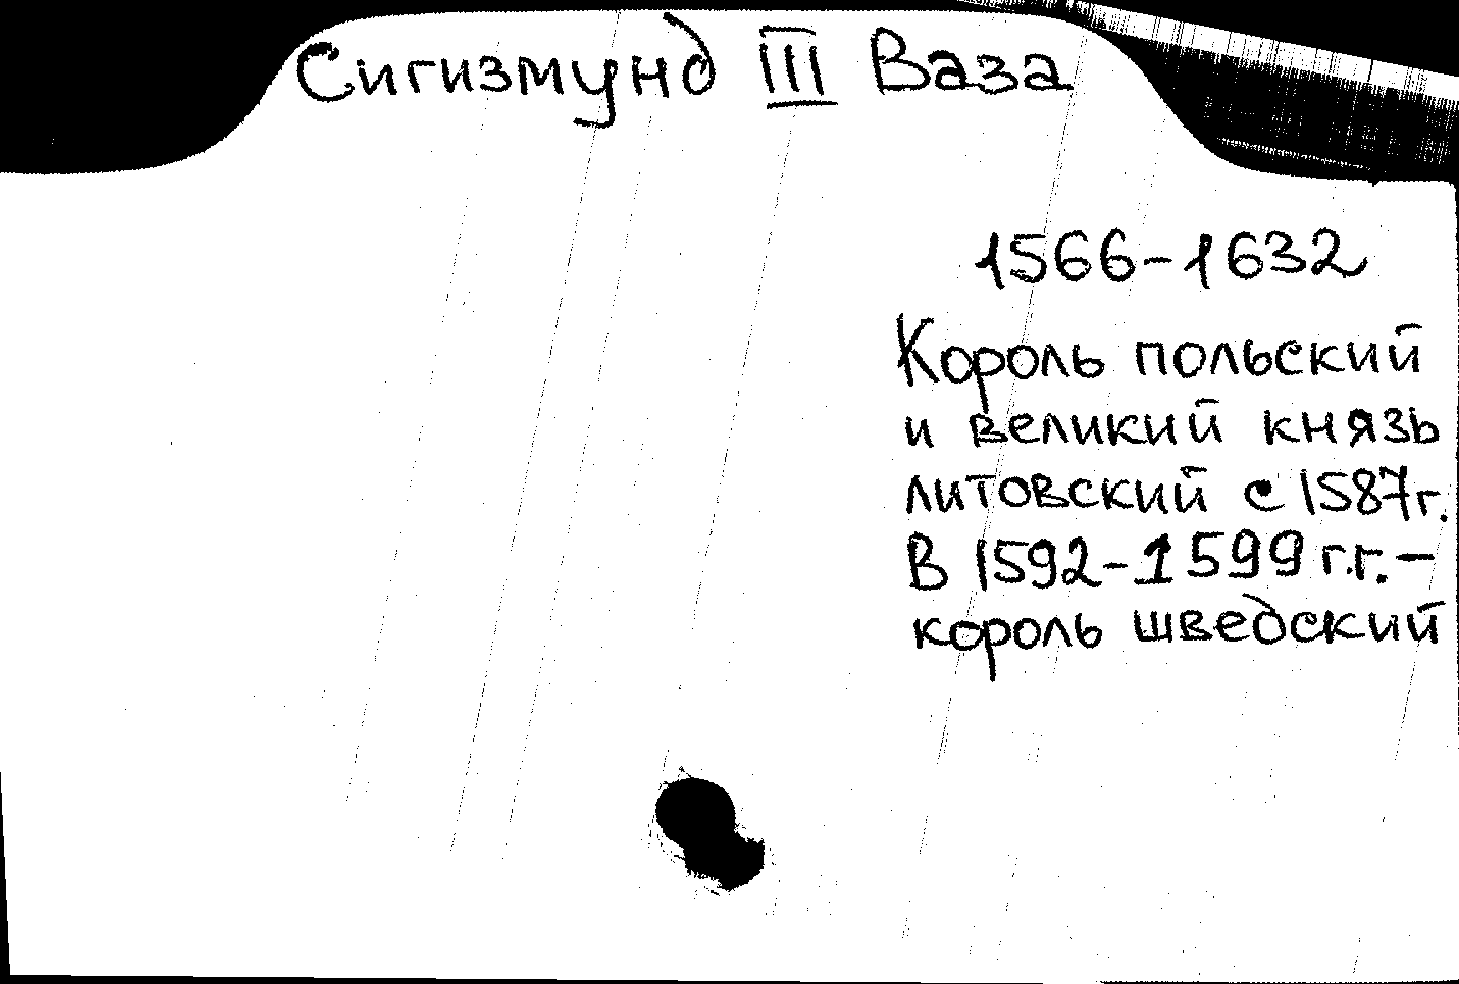 Сигизмунд III Ваза
1566-1632
Король польский
и великий князь
литовский с 1587г.
В 1592-1599 г.г. –
король шведский